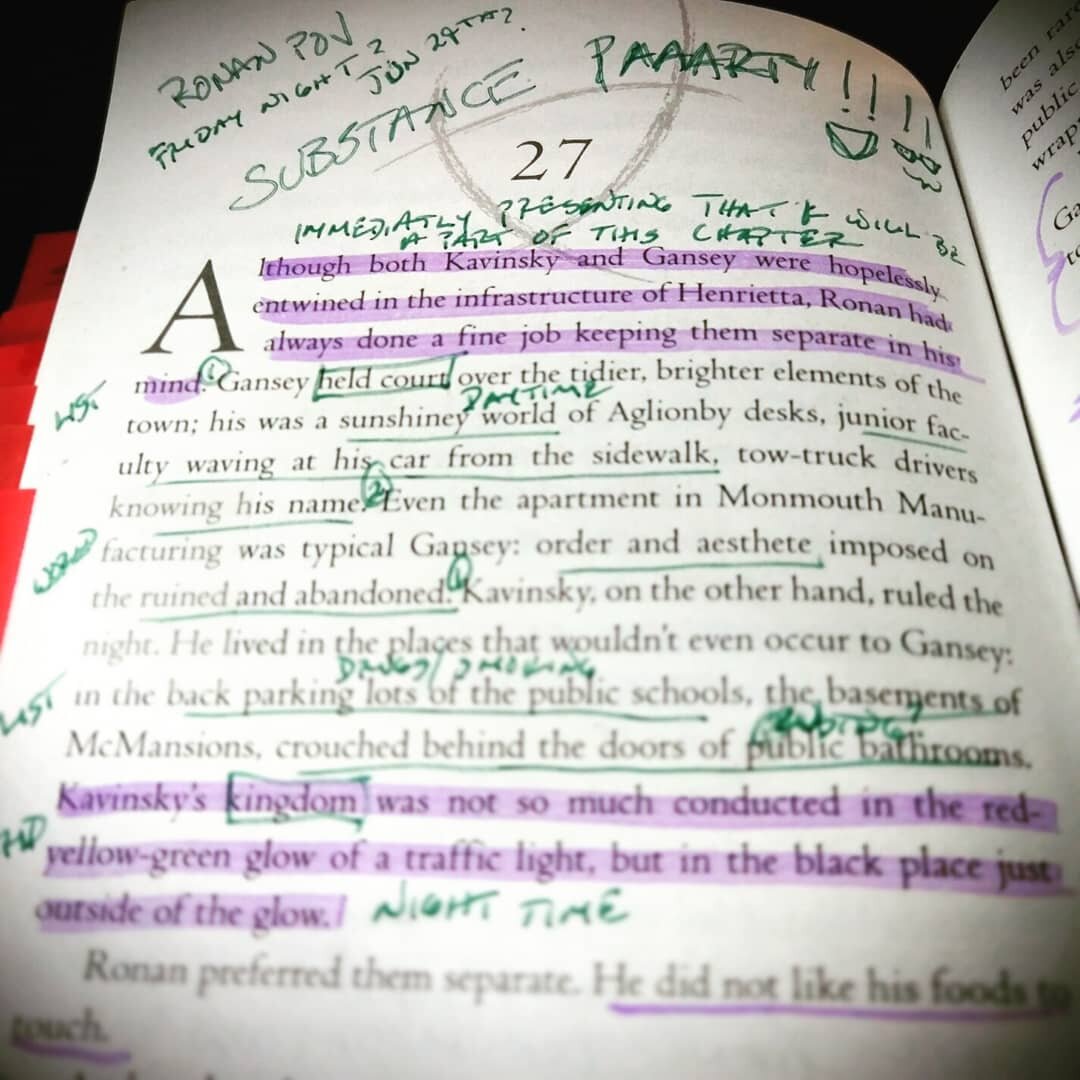 RONAN POV
FRIDAY NIGHT?
JUN 29TH?
SUBSTANCE
PAAARTY!!!!
27
IMMEDIATLY PRESENTING THAT K WILL BE
A PART OF THIS CHAPTER
Although both Kavinsky and Gansey were hopelessly
entwined in the infrastructure of Henrietta, Ronan had
always done a fine job keeping them separate in his
mind. ① Gansey held court over the tidier, brighter elements of the
LIST
DAYTIME
town; his was a sunshiney world of Aglionby desks, junior fac-
ulty waving at his car from the sidewalk, tow-truck drivers
knowing his name. ② Even the apartment in Monmouth Manu-
facturing was typical Gansey: order and aesthete imposed on
the ruined and abandoned. ① Kavinsky, on the other hand, ruled the
night. He lived in the places that wouldn't even occur to Gansey:
DRUGS/SMOKING
LIST
in the back parking lots of the public schools, the basements of
McMansions, crouched behind the doors of public bathrooms.
Kavinsky's kingdom was not so much conducted in the red-
yellow-green glow of a traffic light, but in the black place just
outside of the glow. NIGHT TIME
Ronan preferred them separate. He did not like his foods to
touch.
been rare
was also
public
wrapp
Ga
to